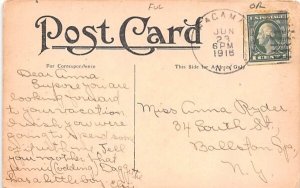 FUL
OR
Post Card
For Correspondence
This Side for Address Only
JUN
23
6 PM
N.Y.
Dear Anna
Suppose you are
looking forward
to your vacation
I wish you were
going to spend some
Tell
your mother that
Jennie
has a little boy
Miss Anna Ryder
34 South St,
Ballston Spa
N.Y.